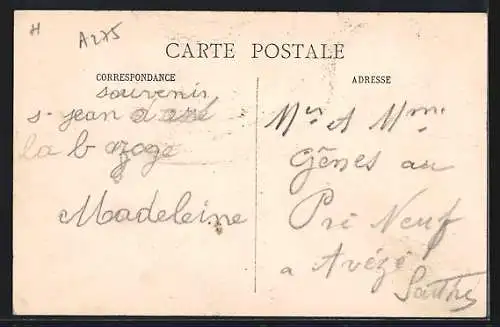 H
A275
CARTE POSTALE
CORRESPONDANCE
souvenir
s. jean d
la b
Madeleine
ADRESSE
Mr et Mme
Gênes au
Pré Neuf
a Avézé
Sarthe